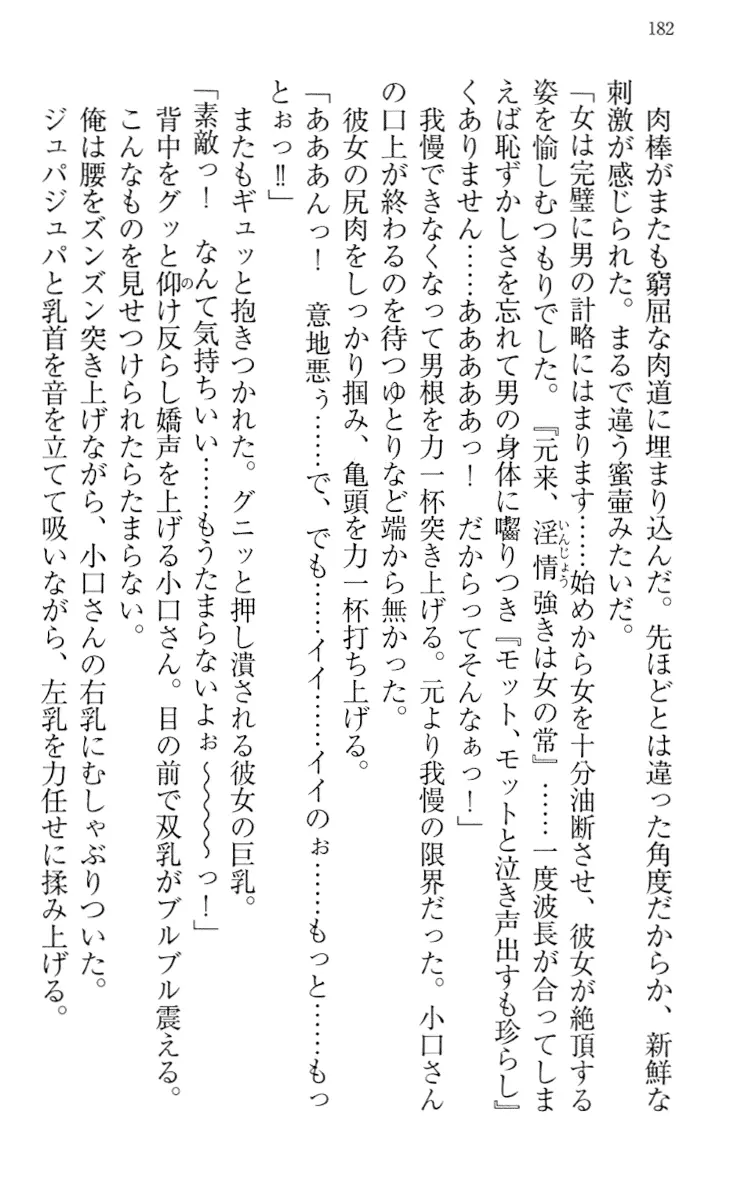 182
肉棒がまたも窮屈な肉道に埋まり込んだ。先ほどとは違った角度だからか、新鮮な
刺激が感じられた。まるで違う蜜壺みたいだ。
「女は完璧に男の計略にはまります……始めから女を十分油断させ、彼女が絶頂する
姿を愉しむつもりでした。『元来、淫情強きは女の常』……一度波長が合ってしま
いんじょう
えば恥ずかしさを忘れて男の身体に囓りつき『モット、モットと泣き声出すも珍らし』
くありません……あああああっ！　だからってそんなぁっ！」
我慢できなくなって男根を力一杯突き上げる。元より我慢の限界だった。小口さん
の口上が終わるのを待つゆとりなど端から無かった。
彼女の尻肉をしっかり掴み、亀頭を力一杯打ち上げる。
「あああんっ！　意地悪ぅ……で、でも……イイ……イイのぉ……もっと……もっ
とぉっ‼」
またもギュッと抱きつかれた。グニッと押し潰される彼女の巨乳。
「素敵っ！　なんて気持ちいい……もうたまらないよぉ〜〜〜〜っ！」
背中をグッと仰け反らし嬌声を上げる小口さん。目の前で双乳がブルブル震える。
の
こんなものを見せつけられたらたまらない。
俺は腰をズンズン突き上げながら、小口さんの右乳にむしゃぶりついた。
ジュパジュパと乳首を音を立てて吸いながら、左乳を力任せに揉み上げる。